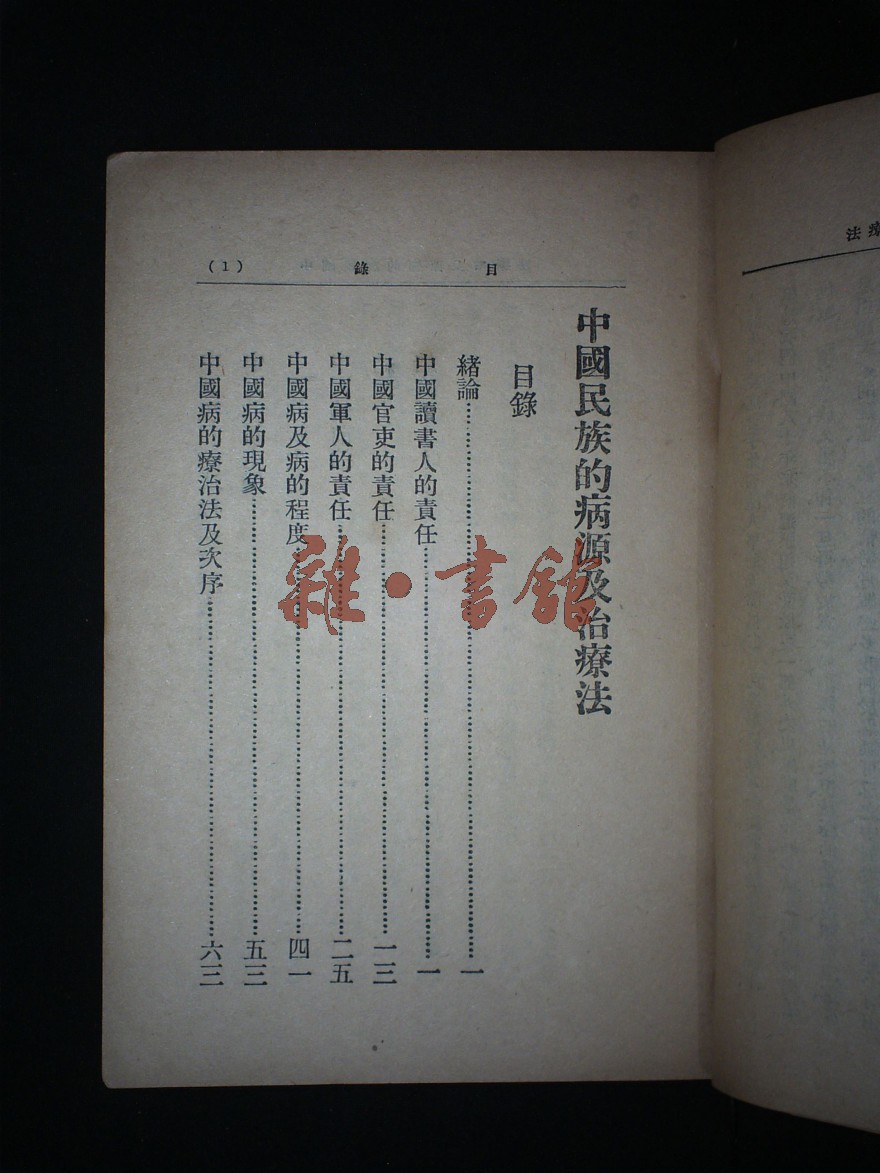 法療
目錄 (1)
中國民族的病源及治療法
目錄
緒論……一
中國讀書人的責任……一
中國官吏的責任……一三
中國軍人的責任……二五
中國病及病的程度……四一
中國病的現象……五三
中國病的療治法及次序……六三
雜·書館